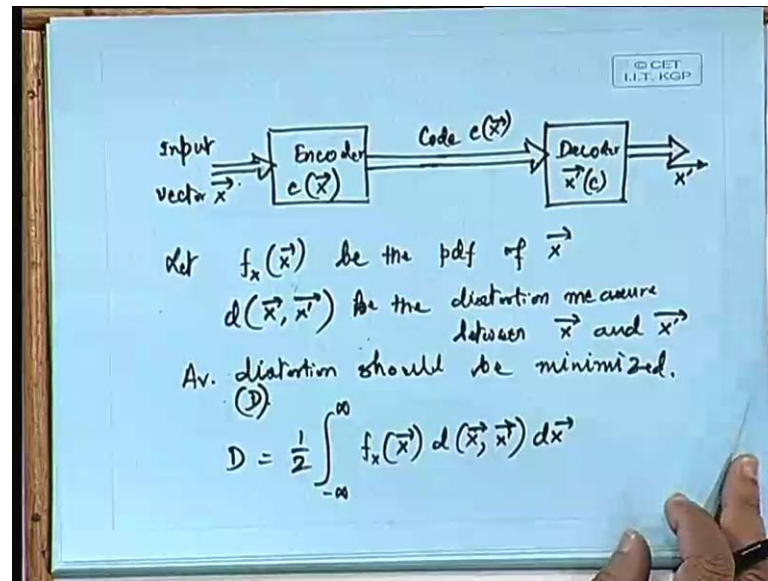 © CET
I.I.T. KGP
Input vector x⃗
Encoder c(x⃗)
Code c(x⃗)
Decoder x⃗'(c)
x⃗'
Let fₓ(x⃗) be the pdf of x⃗
d(x⃗, x⃗') be the distortion measure
between x⃗ and x⃗'
Av. distortion should be minimized.
(D)
D = 1/2 ∫_{-∞}^{∞} fₓ(x⃗) d(x⃗, x⃗') dx⃗